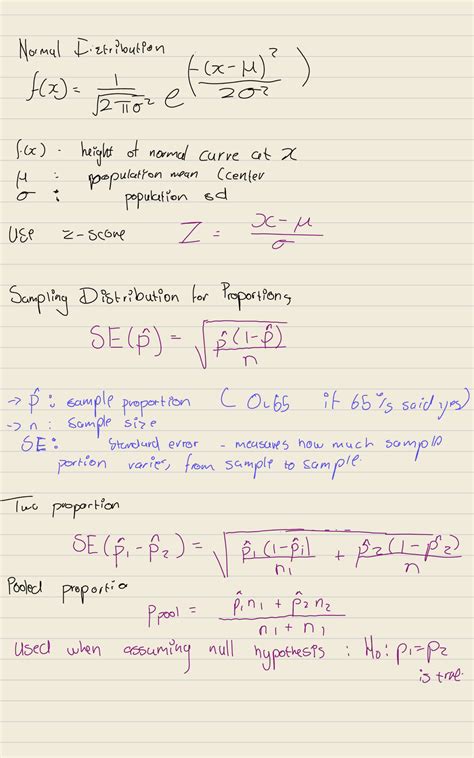 Normal Distribution
f(x) = 1/√2πσ² e^(-(x-μ)²/2σ²)
f(x) - height of normal curve at x
μ : population mean (center
σ : population sd
USE z-score Z = x-μ/σ
Sampling Distribution for Proportions
SE(p̂) = √p̂(1-p̂)/n
→ p̂ : sample proportion ( 0.65 if 65% said yes)
→ n : sample size
SE : Standard error - measures how much sample
portion varies, from sample to sample.
Two proportion
SE(p̂₁-p̂₂) = √p̂₁(1-p̂₁)/n₁ + p̂₂(1-p̂₂)/n
Pooled proportio
Ppool = p̂₁n₁ + p̂₂n₂/n₁+n₁
Used when assuming null hypothesis : H₀: p₁=p₂
is true.